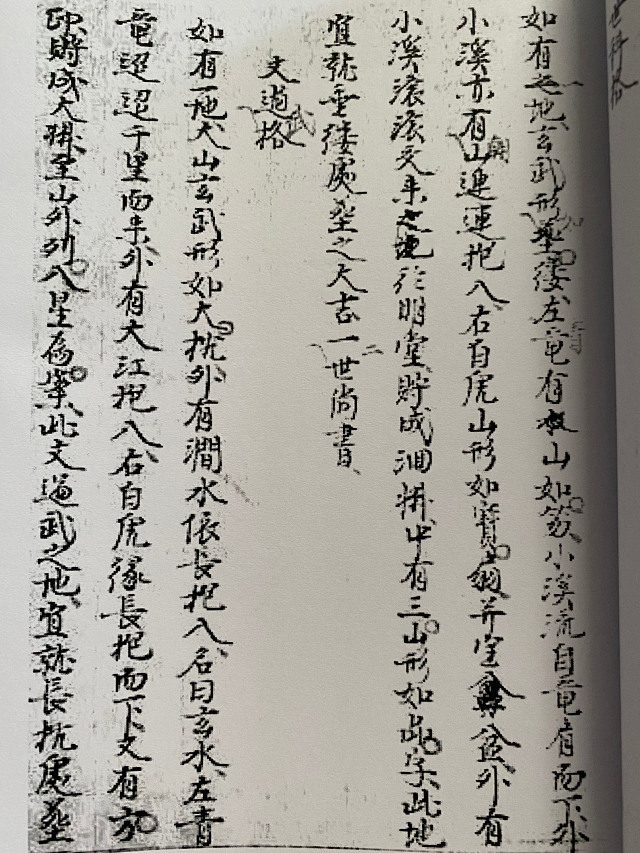 世科格
如有一地玄武形如垂倭左青竜有山如笏小溪流自竜肩而下外
小溪亦有山連連抱入右白虎山形如寶劔并金盆外有
小溪滾滾交来之明堂貯成洄中有三山形如此字此地
宜就垂倭處塟之大吉二世尚書
文過武格
如有一地大山玄武形如大枕外有澗水依長抱入名曰玄水左青
竜迢迢千里而来外有大江抱入右白虎緣長抱而下又有方
印貯成大至山外列八星為案此文過武之地宜就長枕處塟